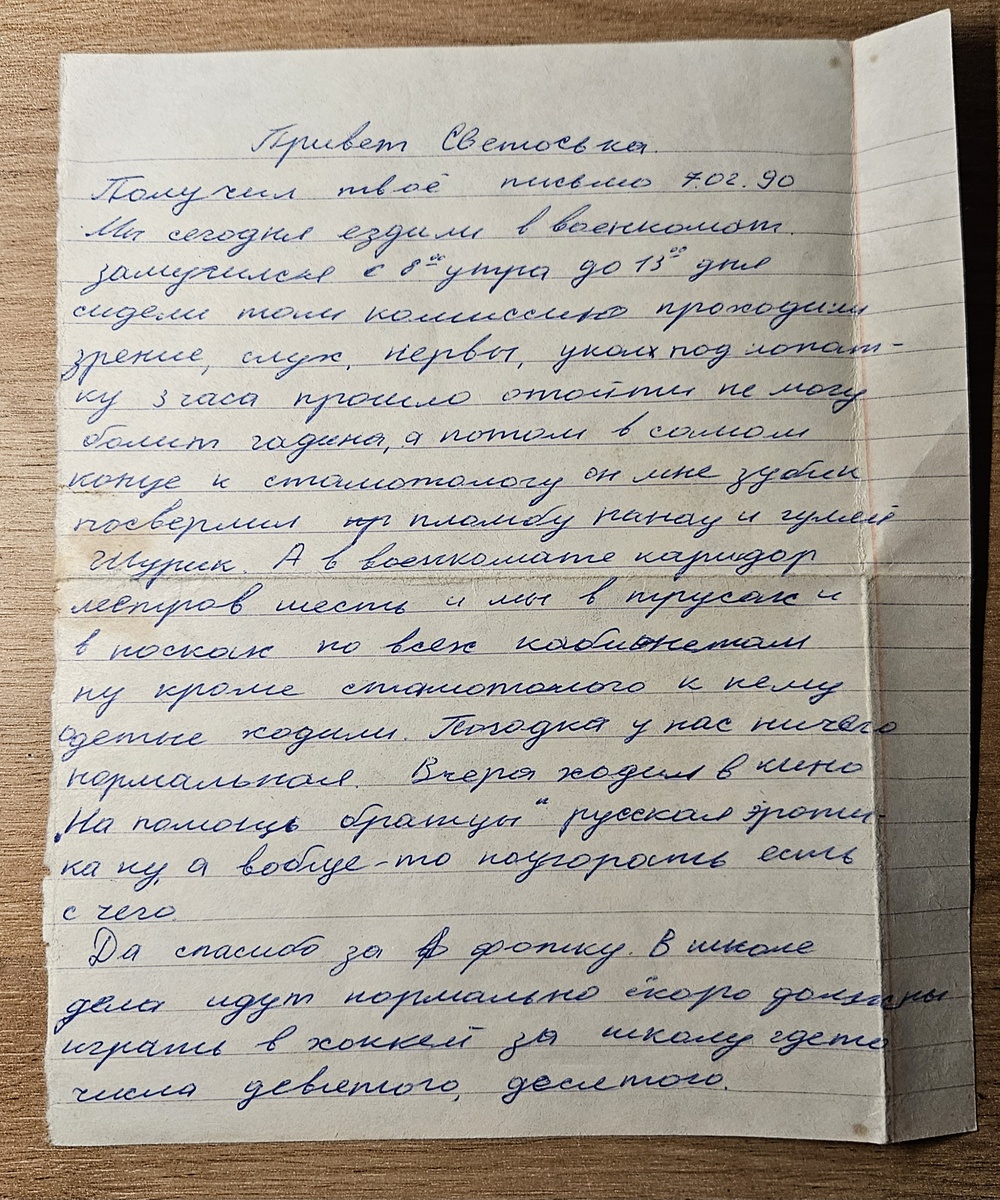 Привет Светоська.
Получил твоё письмо 7.02.90
Мы сегодня ездили в военкомат.
замучился с 8⁰⁰ утра до 13⁰⁰ дня
сидели там комиссию проходили
зрение, слух, нервы, укол под лопат-
ку 3 часа прошло отойти не могу
болит гадина, а потом в самом
конце к стамотологу он мне зубик
посверлил пломбу и гуляй
Шурик. А в военкомате каридор
метров шесть и мы в трусах и
в носках по всех кабинетам
ну кроме стамотолого к нему
одетые ходили. Погодка у нас ничего
нормальная. Вчера ходил в кино
„На помощь братцы" русская эроти-
ка ну, а вобще-то поугорать есть
с чего.
Да спасибо за фотку. В школе
дела идут нормально скоро должны
играть в хоккей за школу гдето
числа девятого, десятого.